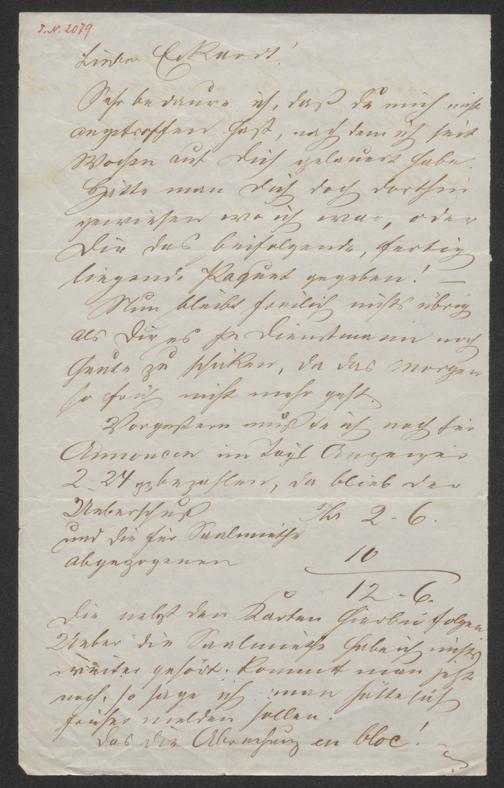 I. N. 2079
Lieber Eckardt!
Sehr bedaure ich, daß du mich nicht
angetroffen hast, nachdem ich seit
Wochen auf dich gelauert habe.
Hätte man dich doch dorthin
gewiesen wo ich war, oder
Dir das beifolgende, fertig
liegende Paquet gegeben! —
Nun bleibt freilich nichts übrig
als Dir es pr Dienstmann noch
heute zu schicken, da das morgen
so früh nicht mehr geht.
Vorgestern mußte ich noch für
Annoncen im Tagbl Anzeiger
2 - 24 bezahlen, da blieb der
Ueberschuß Thr 2 - 6.
und die für Saalmiethe
abgezogenen 10
12 - 6.
Die nebst den Karten hierbei folgen.
Ueber die Saalmiethe habe ich nichts
weiter gehört. Kommt man jetzt
noch, so sage ich man hätte sich
früher melden sollen.
Das die Abrechung en bloc!